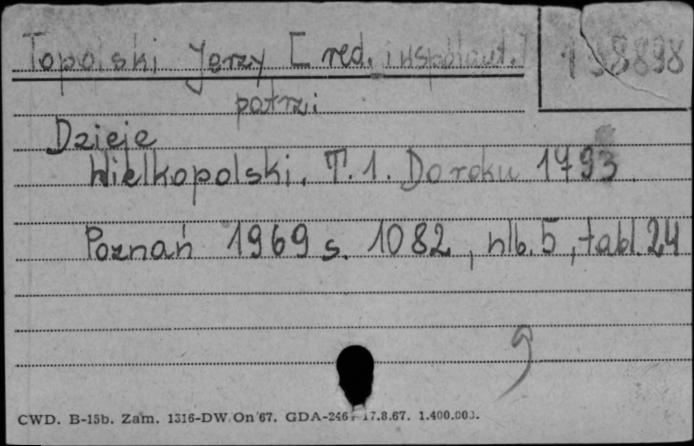 Topolski Jerzy [red. i współaut.]
198898
patrz:
Dzieje
Wielkopolski. T. 1. Do roku 1793.
Poznań 1969 s. 1082, nlb. 5, tabl. 24
CWD. B-15b. Zam. 1316-DW/On/67. GDA-246 - 17.8.67. 1.400.000.